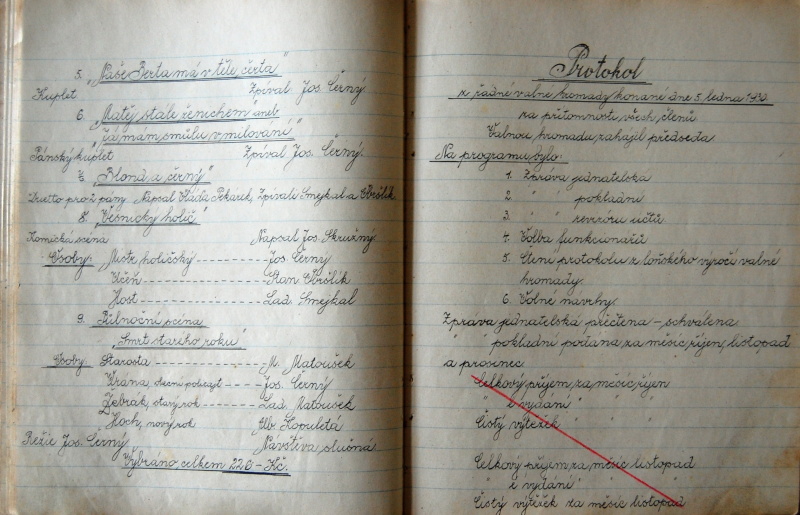 5. „Naše Berta má v těle čerta"
Kuplet Zpíval Jos. Černý.
6. „Matěj stále ženichem" aneb
„Já mám smůlu v milování"
Pánský kuplet Zpíval Jos. Černý.
7. „Blond a černý"
Duetto pro 2 pány Napsal Vláďa Pekárek, Zpívali Smejkal a Obršlík.
8. „Vesnický holič"
Komická scéna Napsal Jos. Skručný.
Osoby: Mistr holičský Jos. Černý
Učeň Stan. Obršlík
Host Lad. Smejkal
9. Půlnoční scéna
„Smrt starého roku"
Osoby: Starosta M. Matoušek
Vrána, obecní policajt Jos. Černý
Žebrák, starý rok Lad. Matoušek
Hoch, nový rok
Režie Jos. Černý. Návštěva slušná.
Vybráno celkem 220 - Kč.
Protokol
z řádné valné hromady konané dne 5. ledna 1930.
za přítomnosti všech členů
Valnou hromadu zahájil předseda.
Na programu bylo:
1. Zpráva jednatelská
2. " pokladní
3. " revizorů účtů
4. Volba funkcionářů
5. Čtení protokolu z loňského výročí valné
hromady.
6. Volné návrhy.
Zpráva jednatelská přečtena - schválena.
" pokladní podána za měsíc říjen, listopad
a prosinec.
Celkový příjem za měsíc říjen
" é vydání " " "
Čistý výtěžek " " "
Celkový příjem za měsíc listopad
" é vydání " " "
Čistý výtěžek za měsíc listopad